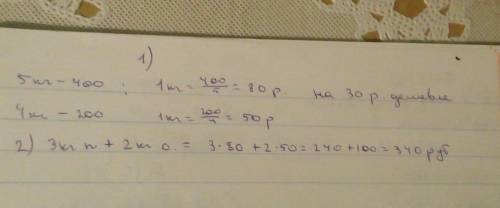 1)
5кг - 400 ; 1кг = 400/5 = 80 р. на 30 р. дешевле
4кг - 200 1кг = 200/4 = 50 р
2) 3кг п + 2кг о. = 3·80 + 2·50 = 240 + 100 = 340 руб